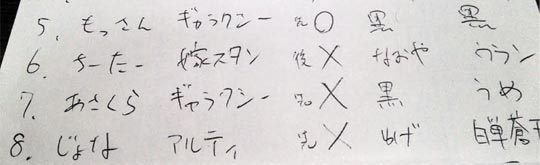 5. もっさん ギャラクシー 先 〇 黒 黒
6. ちーたー 嫁スタン 後 × なおや ウラン
7. あさくら ギャラクシー 先 × 黒 うめ
8. じょな アルティ 先 × はげ 自単蒼天